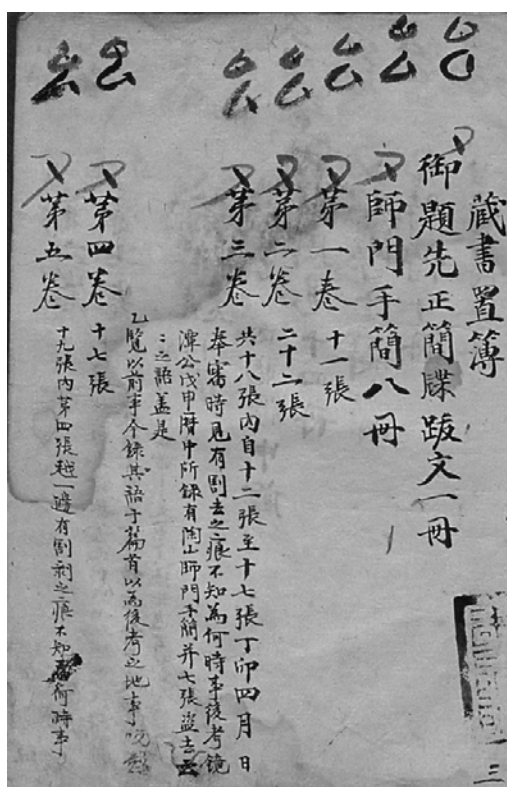 藏書置簿
御題先正簡牒跋文一冊
師門手簡八冊
第一卷 十一張
第二卷 二十二張
第三卷 共十八張內自十二張至十七張丁卯四月日
奉審時見有割去之痕不知為何時事後考鏡
潭公戊甲曆中所錄有陶山師門手簡并七張盜去云
〻之語盖是
乙覽以前事今錄其語于篇首以為後考之地事
第四卷 十七張
第五卷 十九張內第四張越一邊有割剥之痕不知為何時事
三